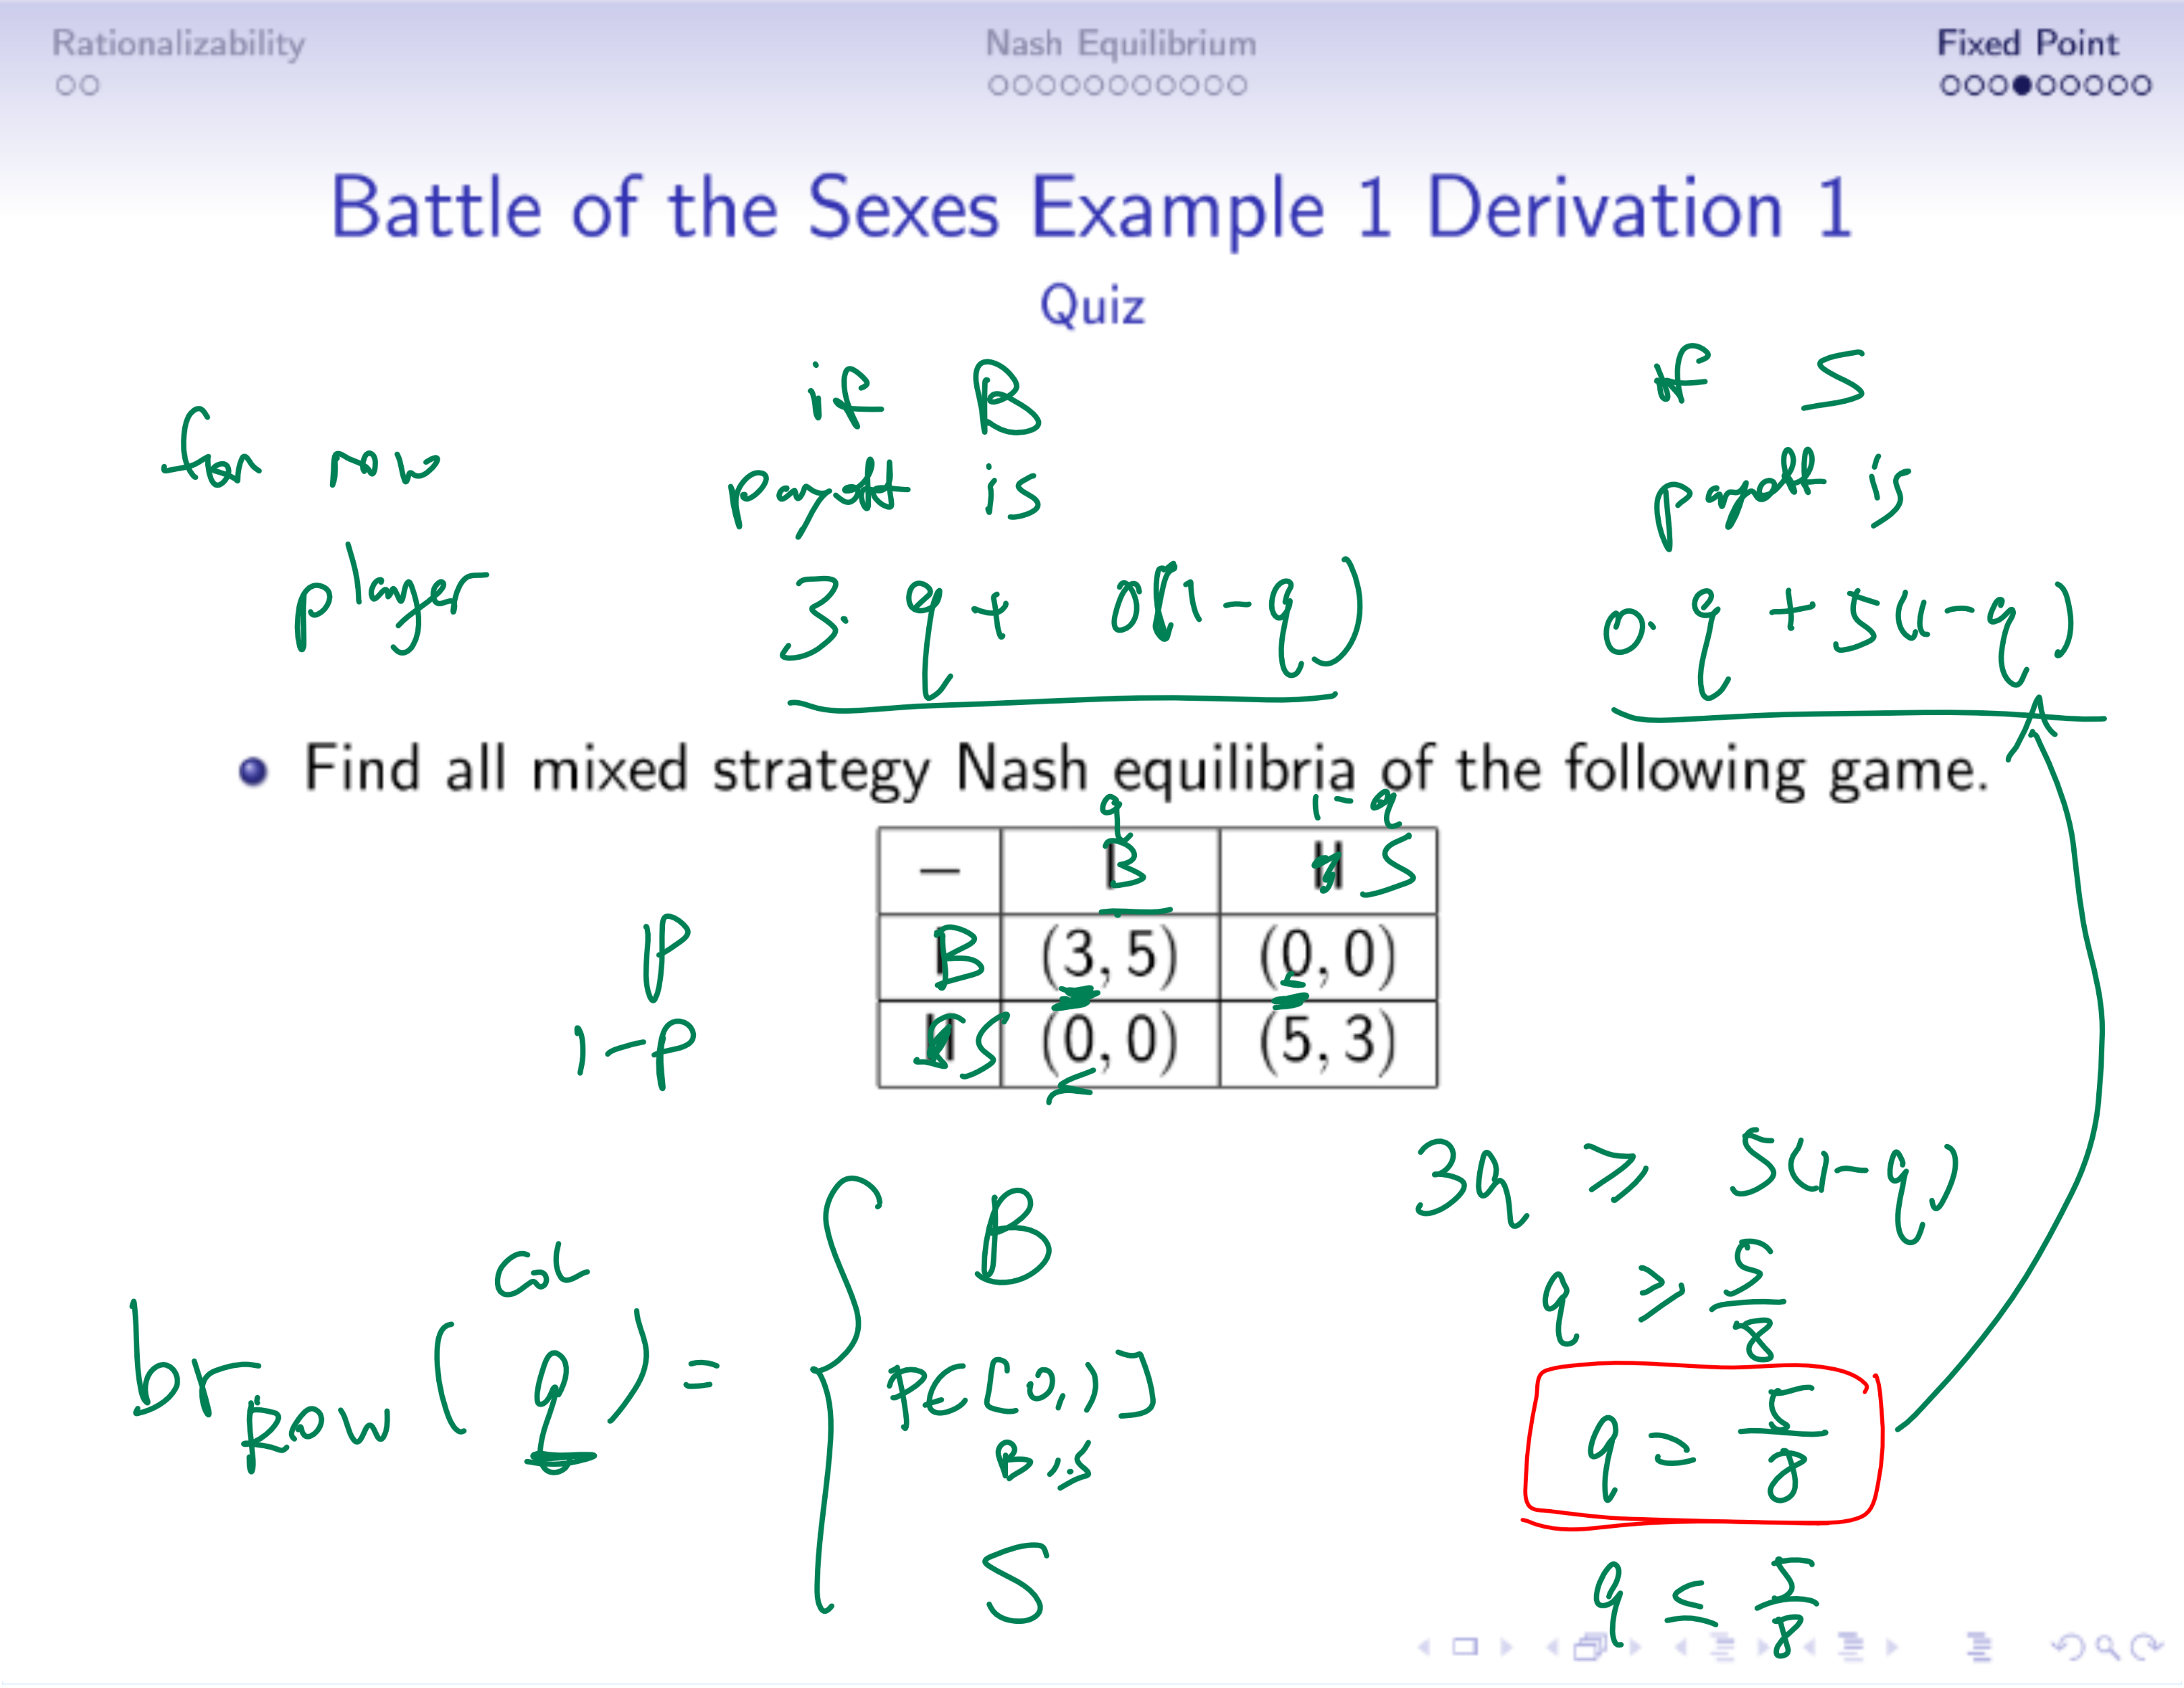 Rationalizability
Nash Equilibrium
Fixed Point
Battle of the Sexes Example 1 Derivation 1
Quiz
for row player
if B payoff is
3·q + 0(1-q)
if S payoff is
0·q + 5(1-q)
Find all mixed strategy Nash equilibria of the following game.
q 1-q
— B S
p B (3, 5) (0, 0)
1-p S (0, 0) (5, 3)
3q ≥ 5(1-q)
br_row (col q) = { B q ≥ 5/8
p ∈ [0,1] q = 5/8
B, S
S q ≤ 5/8